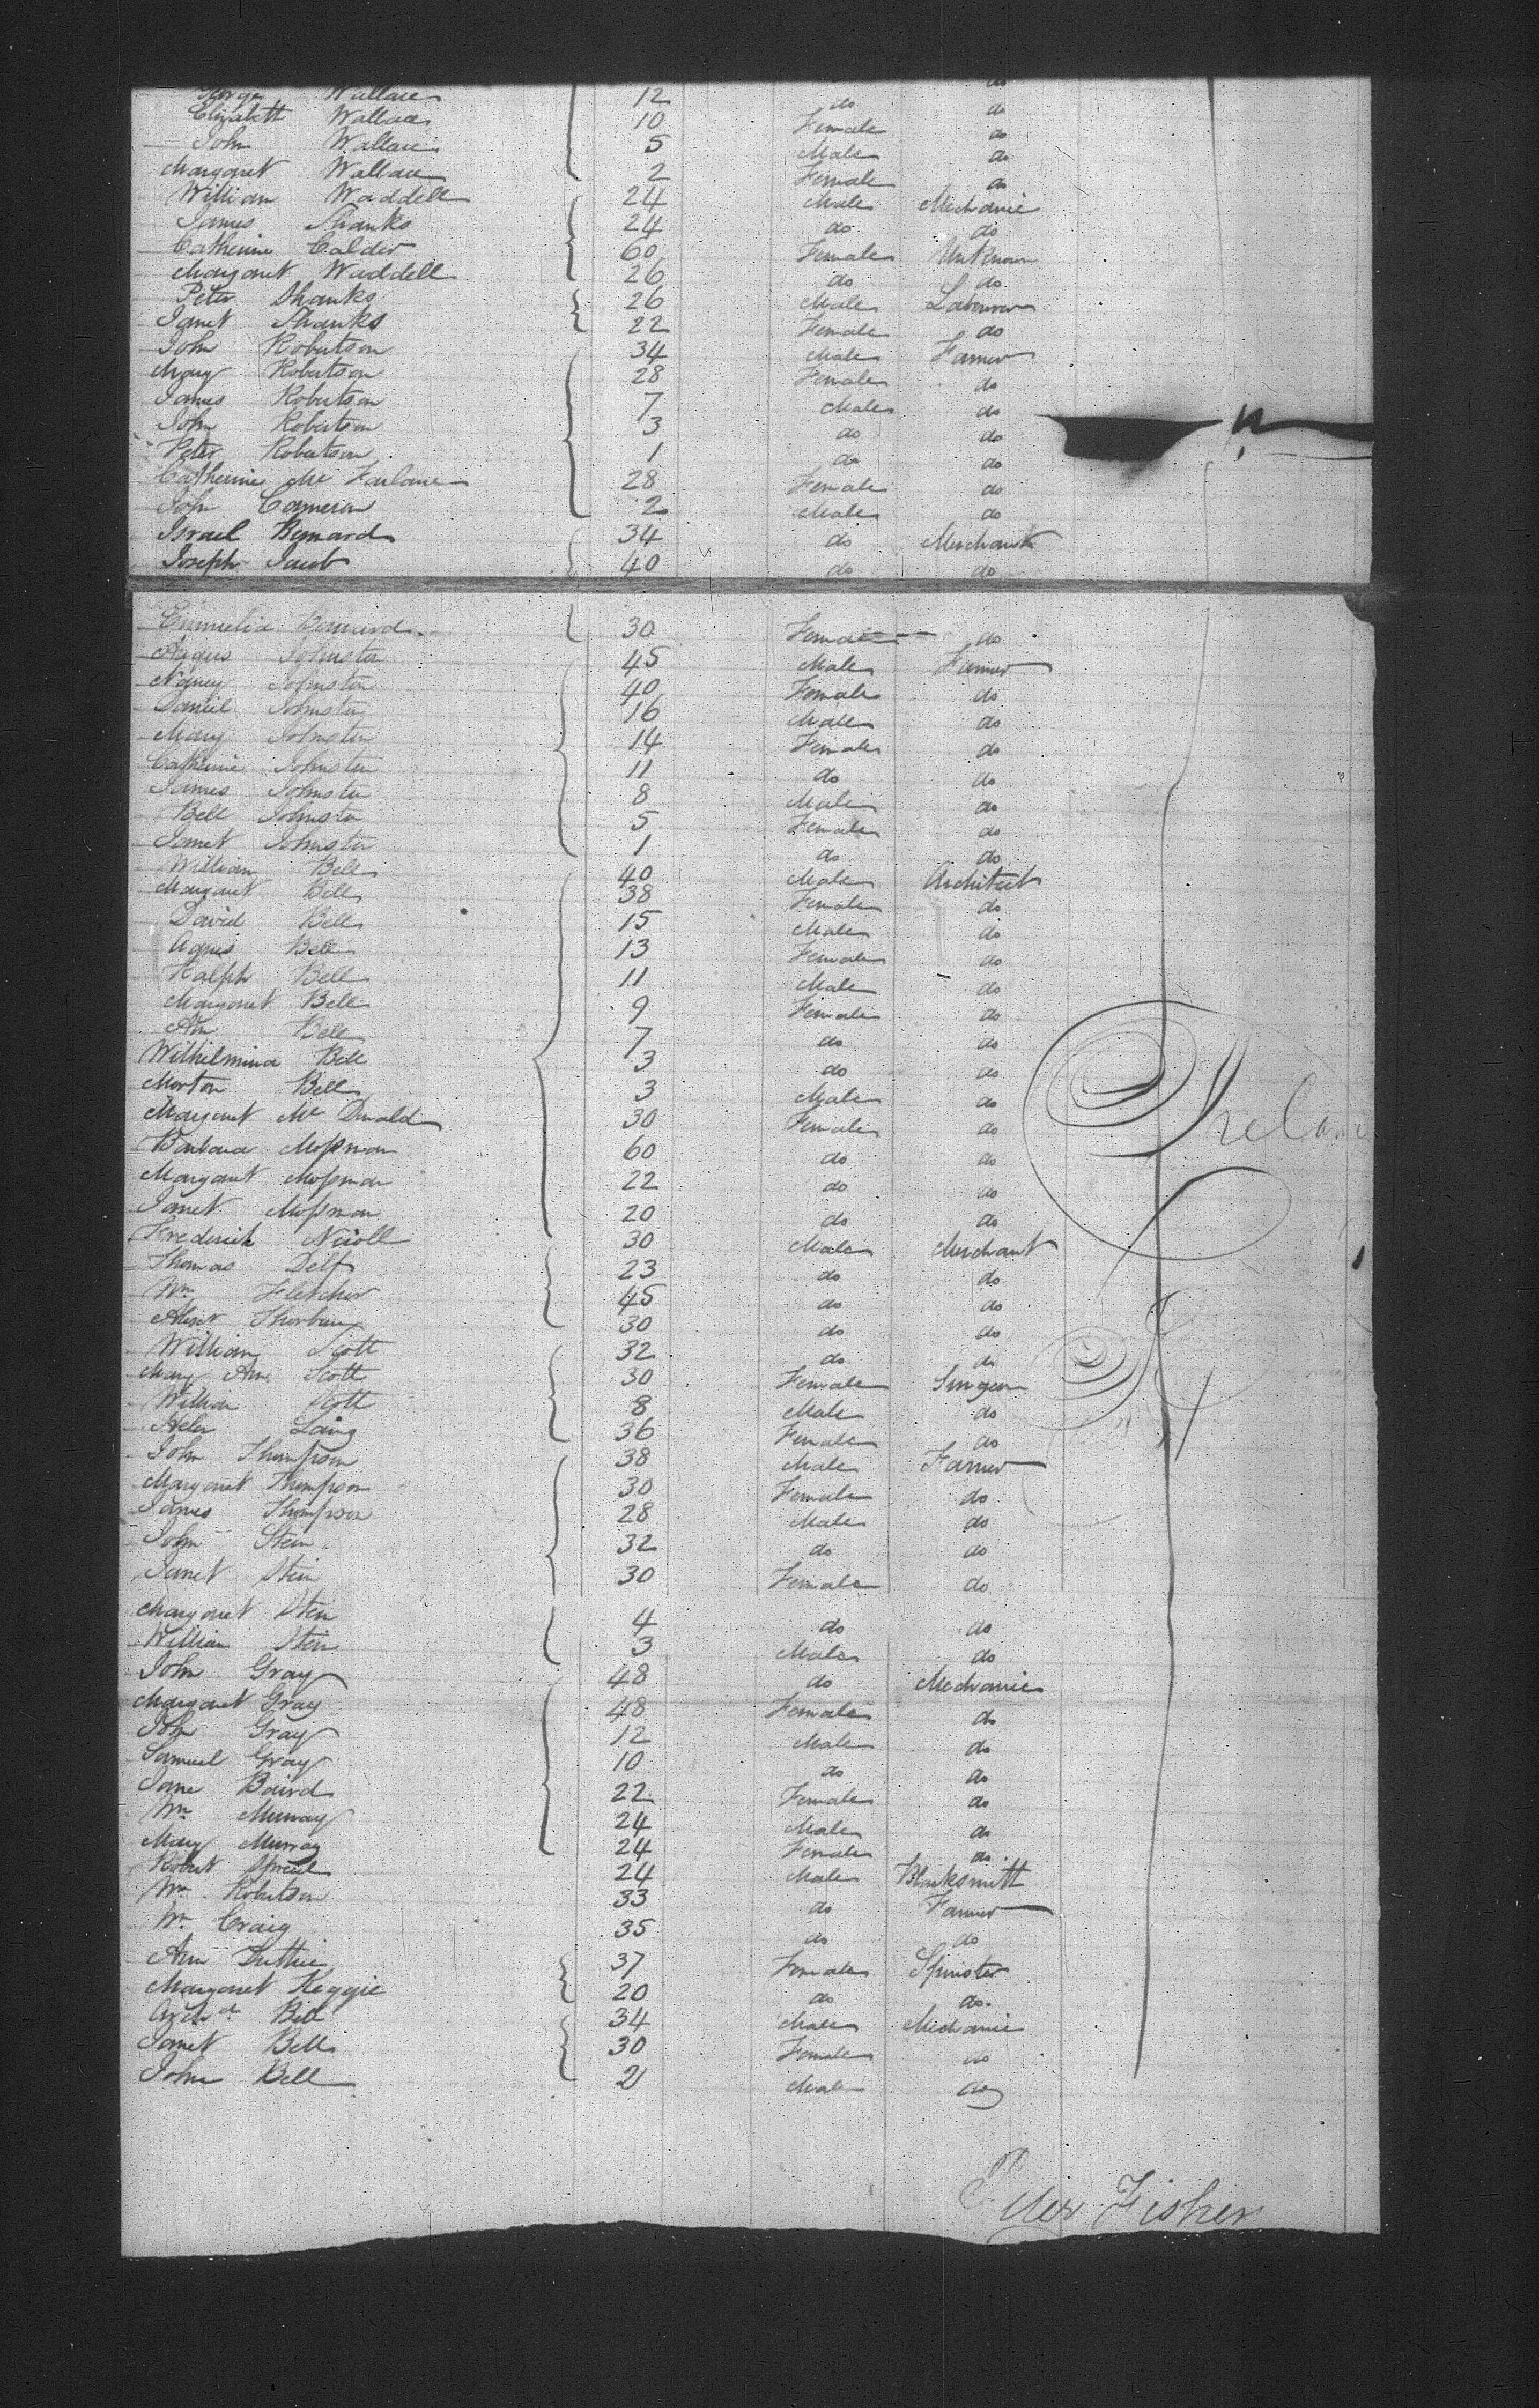 George Wallace 12 do do
Elizabeth Wallace 10 Female do
John Wallace 5 Male do
Margaret Wallace 2 Female do
William Waddell 24 Male Mechanic
James Shanks 24 do do
Catherine Calder 60 Female Unknown
Margaret Waddell 26 do do
Peter Shanks 26 Male Labourer
Janet Shanks 22 Female do
John Robertson 34 Male Farmer
Mary Robertson 28 Female do
James Robertson 7 Male do
John Robertson 3 do do
Peter Robertson 1 do do
Catherine Mc Farlane 28 Female do
John Cameron 2 Male do
Israel Bernard 34 do Merchant
Joseph Jacob 40 do do
Emmelia Bernard 30 Female do
Angus Johnston 45 Male Farmer
Nancy Johnston 40 Female do
Daniel Johnston 16 Male do
Mary Johnston 14 Female do
Catherine Johnston 11 do do
James Johnston 8 Male do
Bell Johnston 5 Female do
Janet Johnston 1 do do
William Bell 40 Male Architect
Margaret Bell 38 Female do
David Bell 15 Male do
Agnes Bell 13 Female do
Ralph Bell 11 Male do
Margaret Bell 9 Female do
Ann Bell 7 do do
Wilhelmina Bell 3 do do
Morton Bell 3 Male do
Margaret Mc Donald 30 Female do
Barbara Mossman 60 do do
Margaret Mossman 22 do do
Janet Mossman 20 do do
Frederick Nicoll 30 Male Merchant
Thomas Delf 23 do do
Wm Fletcher 45 do do
Alexr Thorburn 30 do do
William Scott 32 do do
Mary Ann Scott 30 Female Surgeon
William Scott 8 Male do
Helen Laing 36 Female do
John Thompson 38 Male Farmer
Margaret Thompson 30 Female do
James Thompson 28 Male do
John Stein 32 do do
Janet Stein 30 Female do
Margaret Stein 4 do do
William Stein 3 Male do
John Gray 48 do Mechanic
Margaret Gray 48 Female do
John Gray 12 Male do
Samuel Gray 10 do do
Jane Baird 22 Female do
Wm Murray 24 Male do
Mary Murray 24 Female do
Robert Spreul 24 Male Blacksmith
Wm Robertson 33 do Farmer
Wm Craig 35 do do
Ann Duthie 37 Female Spinster
Margaret Keggie 20 do do
Archd Bell 34 Male Mechanic
Janet Bell 30 Female do
John Bell 2 Male do
Peter Fisher